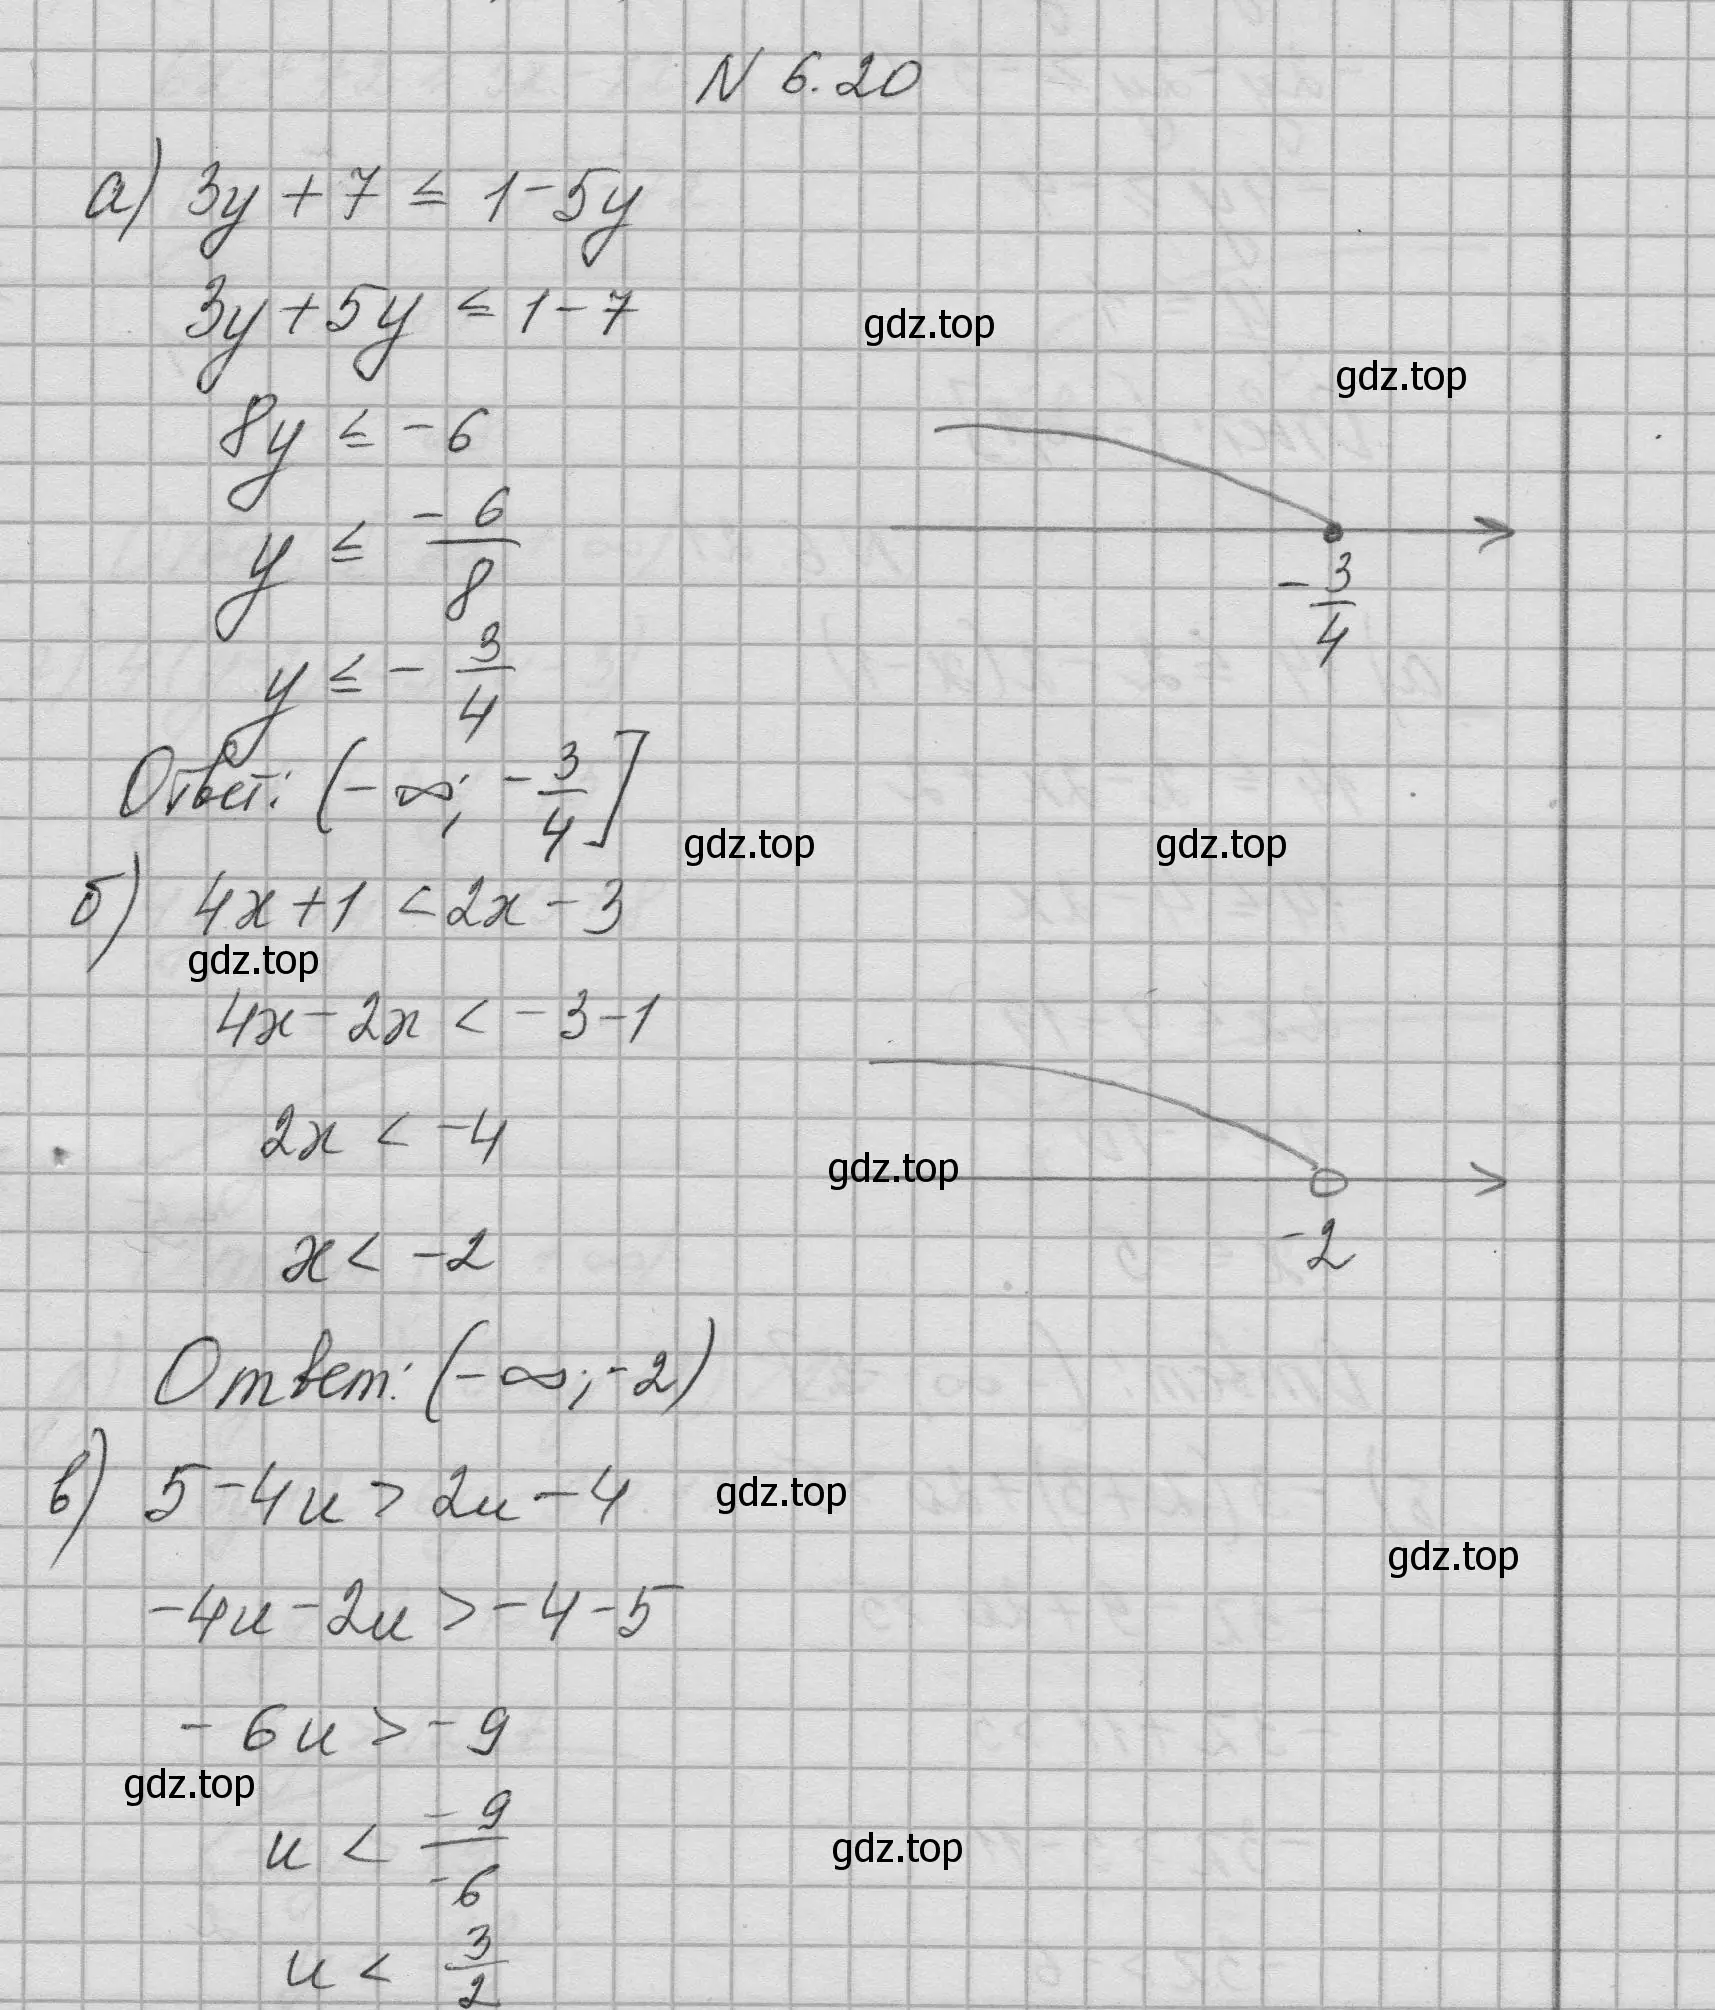 N 6.20
а) 3y + 7 ≤ 1 - 5y
3y + 5y ≤ 1 - 7
gdz.top
gdz.top
8y ≤ -6
y ≤ -6/8
-3/4
y ≤ -3/4
Ответ: (-∞; -3/4]
gdz.top
gdz.top
б) 4x + 1 < 2x - 3
gdz.top
4x - 2x < -3 - 1
2x < -4
gdz.top
x < -2
-2
Ответ: (-∞; -2)
в) 5 - 4u > 2u - 4
gdz.top
gdz.top
-4u - 2u > -4 - 5
-6u > -9
gdz.top
u < -9/-6
gdz.top
u < 3/2